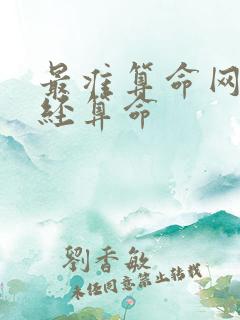 最准算命网
经算命
劉香敏
未经同意禁止转载